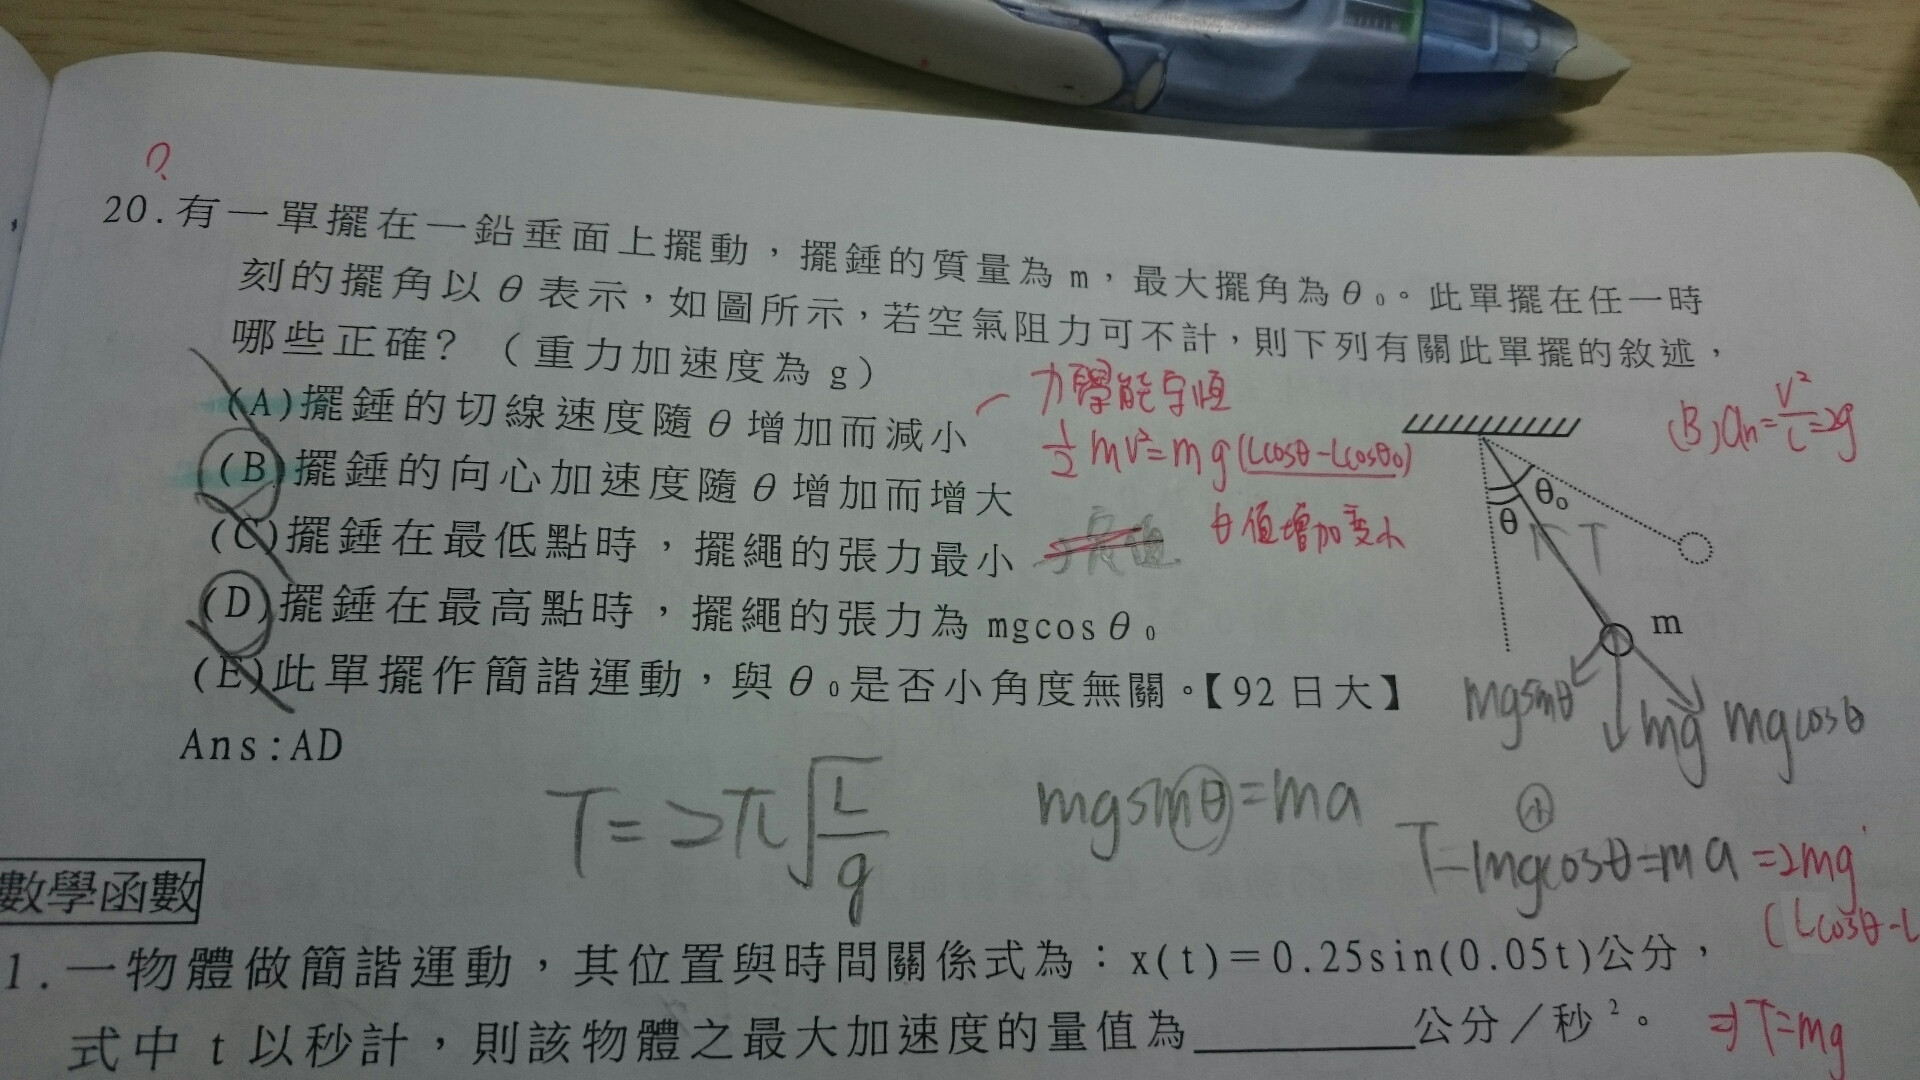 ?
20.有一單擺在一鉛垂面上擺動，擺錘的質量為 m，最大擺角為θ₀。此單擺在任一時
刻的擺角以θ表示，如圖所示，若空氣阻力可不計，則下列有關此單擺的敘述，
哪些正確？（重力加速度為 g）
(A)擺錘的切線速度隨θ增加而減小
力學能守恆
(B)擺錘的向心加速度隨θ增加而增大
½mv²=mg(Lcosθ-Lcosθ₀)
(C)擺錘在最低點時，擺繩的張力最小
θ值增加變小
(D)擺錘在最高點時，擺繩的張力為 mgcosθ₀
(E)此單擺作簡諧運動，與θ₀是否小角度無關。【92日大】
Ans:AD
(B)an=v²/L=2g
θ₀
θ
T
m
mgsinθ
mg
mgcosθ
T=2π√(L/g)
mgsinθ=ma
T-mgcosθ=ma=2mg
(Lcosθ-L
⇒T=mg
數學函數
1.一物體做簡諧運動，其位置與時間關係式為：x(t)=0.25sin(0.05t)公分，
式中 t 以秒計，則該物體之最大加速度的量值為________公分／秒²。